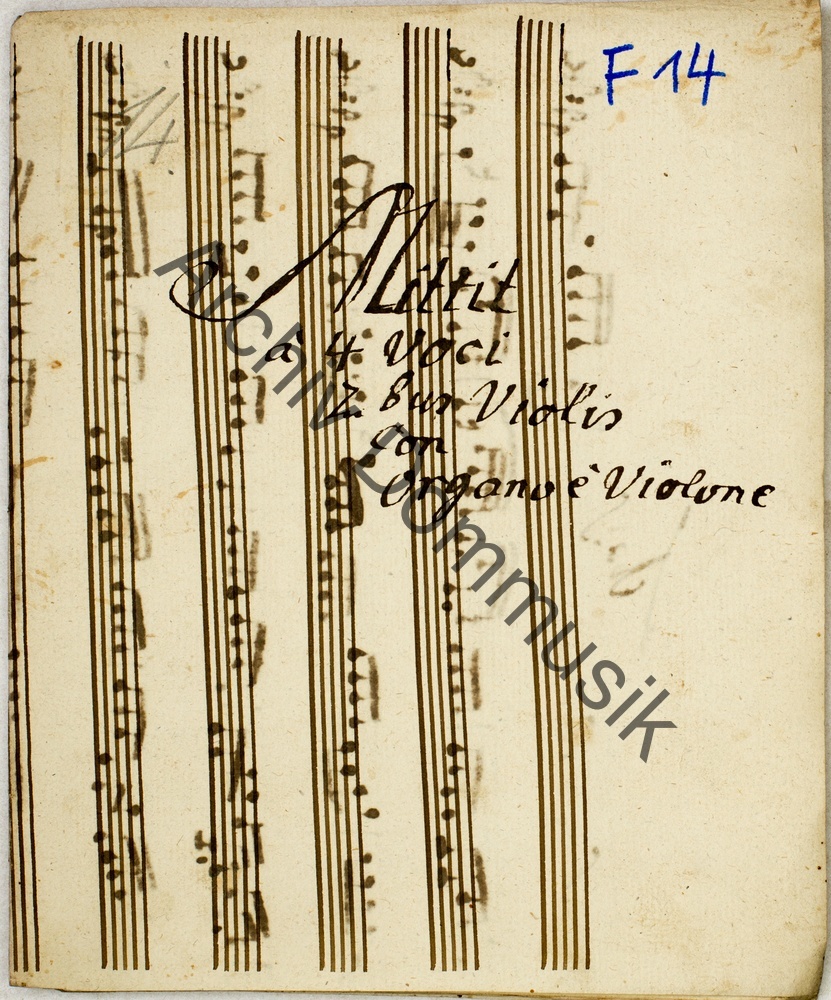 F 14
14
Mittit
à 4 Voci
2 bus Violis
con
Organo è Violone
Archiv Dommusik